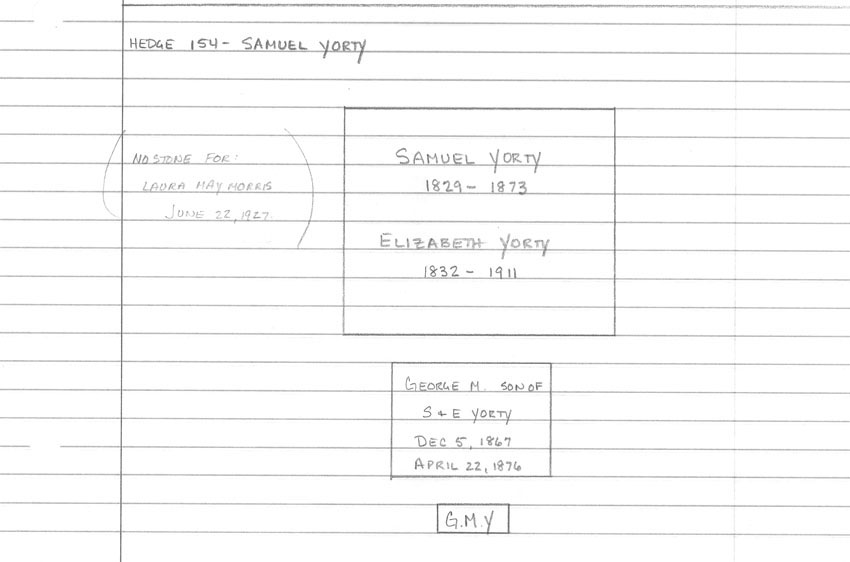 HEDGE 154 - SAMUEL YORTY
NO STONE FOR:
LAURA MAY MORRIS
JUNE 22, 1927
SAMUEL YORTY
1829 - 1873
ELIZABETH YORTY
1832 - 1911
GEORGE M. SON OF
S & E YORTY
DEC 5, 1867
APRIL 22, 1876
G.M.Y